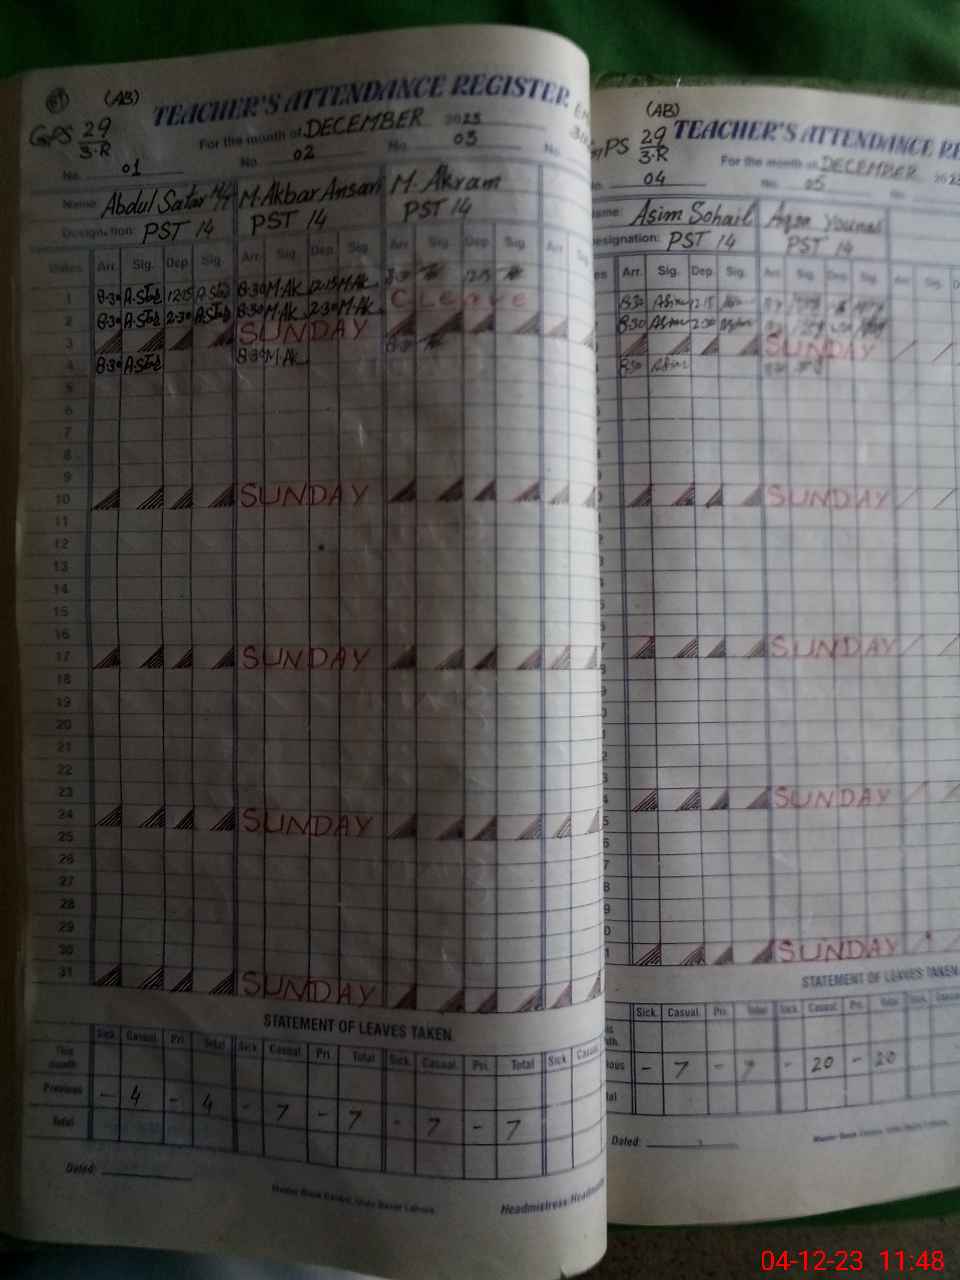 (AB)
TEACHER'S ATTENDANCE REGISTER
GPS 29
3-R
For the month of DECEMBER 2023
No. 01 No. 02 No. 03 No.
Name: Abdul Satar M. Akbar Ansari M. Akram
Designation: PST 14 PST 14 PST 14
Dates Arr. Sig. Dep. Sig. Arr. Sig. Dep. Sig. Arr. Sig. Dep. Sig. Arr. Sig.
1 8:30 A.Std 12:15 A.Std 8:30 M.Ak 12:15 M.Ak 8:30 12:15
2 8:30 A.Std 2:30 A.Std 8:30 M.Ak 2:30 M.Ak C Leave
3 SUNDAY
4 8:30 A.Std 8:30 M.Ak 8:30
5
6
7
8
9
10 SUNDAY
11
12
13
14
15
16
17 SUNDAY
18
19
20
21
22
23
24 SUNDAY
25
26
27
28
29
30
31 SUNDAY
STATEMENT OF LEAVES TAKEN
Sick. Casual. Pri. Total Sick. Casual. Pri. Total Sick. Casual. Pri. Total Sick. Casual
This month
Previous - 4 - 4 - 7 - 7 - 7 - 7
Total
Dated:
Headmistress/Headmaster
(AB)
GPS 29
3-R
TEACHER'S ATTENDANCE RE
For the month of DECEMBER 2023
No. 04 No. 05 No.
Name: Asim Sohail Aqsa Younas
Designation: PST 14 PST 14
Arr. Sig. Dep. Sig. Arr. Sig. Dep. Sig. Arr. Sig.
8:30 Asim 12:15
8:30 Asim 2:30
SUNDAY
8:30 Asim
SUNDAY
SUNDAY
SUNDAY
SUNDAY
STATEMENT OF LEAVES TAKEN
Sick. Casual. Pri. Total Sick. Casual. Pri. Total Sick. Casual
- 7 - 7 - 20 - 20
Dated:
04-12-23 11:48